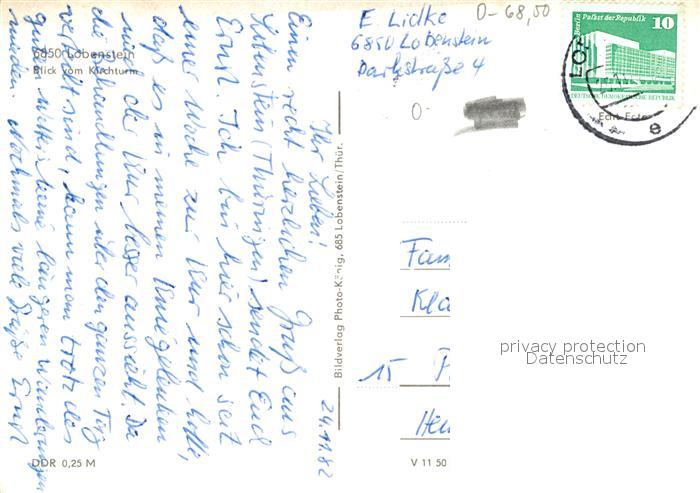 E. Lidke
6850 Lobenstein
Parkstraße 4
D-68,50
Berlin Palast der Republik
10
DEUTSCHE DEMOKRATISCHE REPUBLIK
e
6850 Lobenstein
Blick vom Kirchturm
24.11.82
Ihr Lieben!
Einen recht herzlichen Gruß aus
Lobenstein (Thüringen) sendet Euch
Ernst. Ich bin hier schon seit
einer Woche zur Kur und hoffe,
daß es in meinen Kniegelenken
nach der Kur besser aussieht. Da
die Behandlungen über den ganzen Tag
verteilt sind, kann man trotz des
guten keine längeren Wanderungen
Nochmals viele Grüße Ernst
Bildverlag Photo-König, 685 Lobenstein/Thür.
Fam
Kla
15 P
DDR 0,25 M
V 11 50
privacy protection
Datenschutz